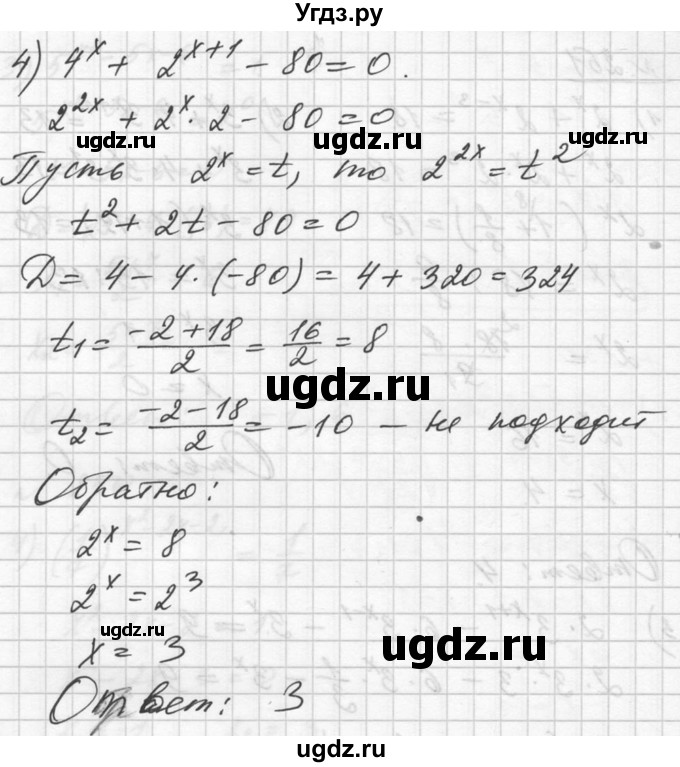 Угдз.ру
4) 4^x + 2^{x+1} - 80 = 0.
2^{2x} + 2^x · 2 - 80 = 0
ugdz.ru ugdz.ru
Пусть 2^x = t, то 2^{2x} = t^2
ugdz.ru ugdz.ru
t^2 + 2t - 80 = 0
D = 4 - 4 · (-80) = 4 + 320 = 324
t_1 = \frac{-2+18}{2} = \frac{16}{2} = 8
ugdz.ru
t_2 = \frac{-2-18}{2} = -10 - не подходит
Обратно:
2^x = 8
2^x = 2^3
ugdz.ru
x = 3
ugdz.ru
Ответ: 3
ugdz.ru
ugdz.ru